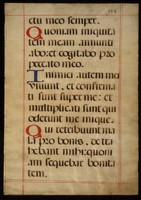 ctu meo semper.
Quoniam iniquita
tem meam annunti
abo: et cogitabo pro
peccato meo.
Inimici autem mei
vivunt, et confirma
ti sunt super me: et
multiplicati sunt qui
oderunt me inique.
Qui retribuunt ma
la pro bonis, detra
hebant mihi: quoni
am sequebar bonita
tem.